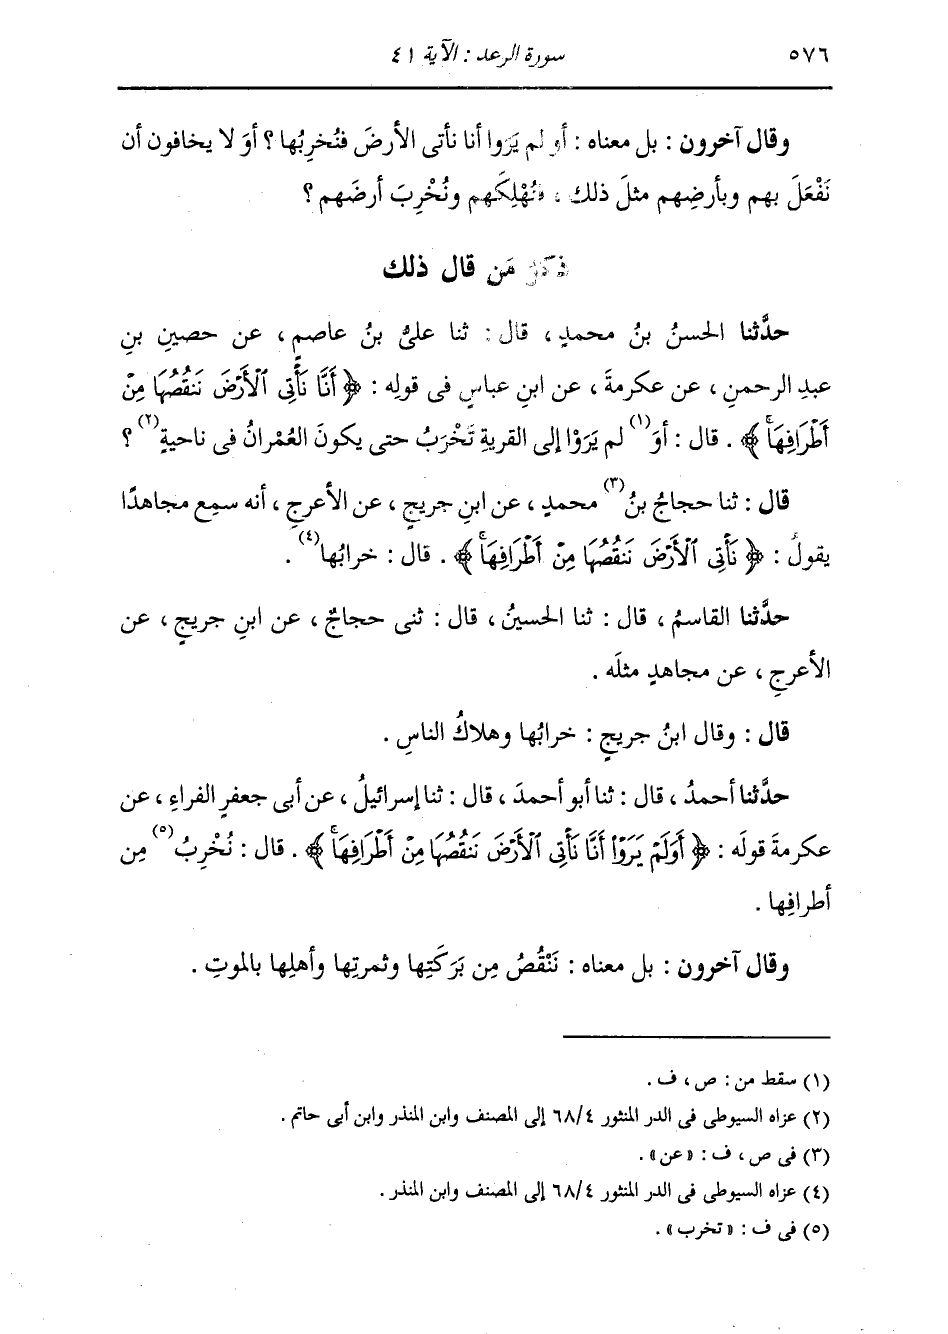 ٥٧٦ سورة الرعد : الآية ٤١
وقال آخرون : بل معناه : أو لم يَرَوا أنا نأتى الأرضَ فنُخرِبُها ؟ أوَ لا يخافون أن
نَفْعَلَ بهم وبأرضِهم مثلَ ذلك ، فنُهْلِكَهم ونُخْرِبَ أرضَهم ؟
ذكرُ مَن قال ذلك
حدَّثنا الحسنُ بنُ محمدٍ ، قال : ثنا علىُّ بنُ عاصمٍ ، عن حصينِ بنِ
عبدِ الرحمنِ ، عن عكرمةَ ، عن ابنِ عباسٍ فى قولِه : ﴿ أَنَّا نَأْتِى ٱلْأَرْضَ نَنقُصُهَا مِنْ
أَطْرَافِهَاۚ ﴾ . قال : أوَ(١) لم يَرَوْا إلى القريةِ تَخْرَبُ حتى يكونَ العُمْرانُ فى ناحيةٍ(٢) ؟
قال : ثنا حجاجُ بنُ(٣) محمدٍ ، عن ابنِ جريجٍ ، عن الأعرجِ ، أنه سمِع مجاهدًا
يقولُ : ﴿ نَأْتِى ٱلْأَرْضَ نَنقُصُهَا مِنْ أَطْرَافِهَاۚ ﴾ . قال : خرابُها(٤) .
حدَّثنا القاسمُ ، قال : ثنا الحسينُ ، قال : ثنى حجاجٌ ، عن ابنِ جريجٍ ، عن
الأعرجِ ، عن مجاهدٍ مثلَه .
قال : وقال ابنُ جريجٍ : خرابُها وهلاكُ الناسِ .
حدَّثنا أحمدُ ، قال : ثنا أبو أحمدَ ، قال : ثنا إسرائيلُ ، عن أبى جعفرٍ الفراءِ ، عن
عكرمةَ قولَه : ﴿ أَوَلَمْ يَرَوْا۟ أَنَّا نَأْتِى ٱلْأَرْضَ نَنقُصُهَا مِنْ أَطْرَافِهَاۚ ﴾ . قال : نُخْرِبُ(٥) مِن
أطرافِها .
وقال آخرون : بل معناه : نَنْقُصُ مِن بَرَكَتِها وثمرتِها وأهلِها بالموتِ .
(١) سقط من : ص ، ف .
(٢) عزاه السيوطى فى الدر المنثور ٤/ ٦٨ إلى المصنف وابن المنذر وابن أبى حاتم .
(٣) فى ص ، ف : «عن» .
(٤) عزاه السيوطى فى الدر المنثور ٤/ ٦٨ إلى المصنف وابن المنذر .
(٥) فى ف : «تخرب» .